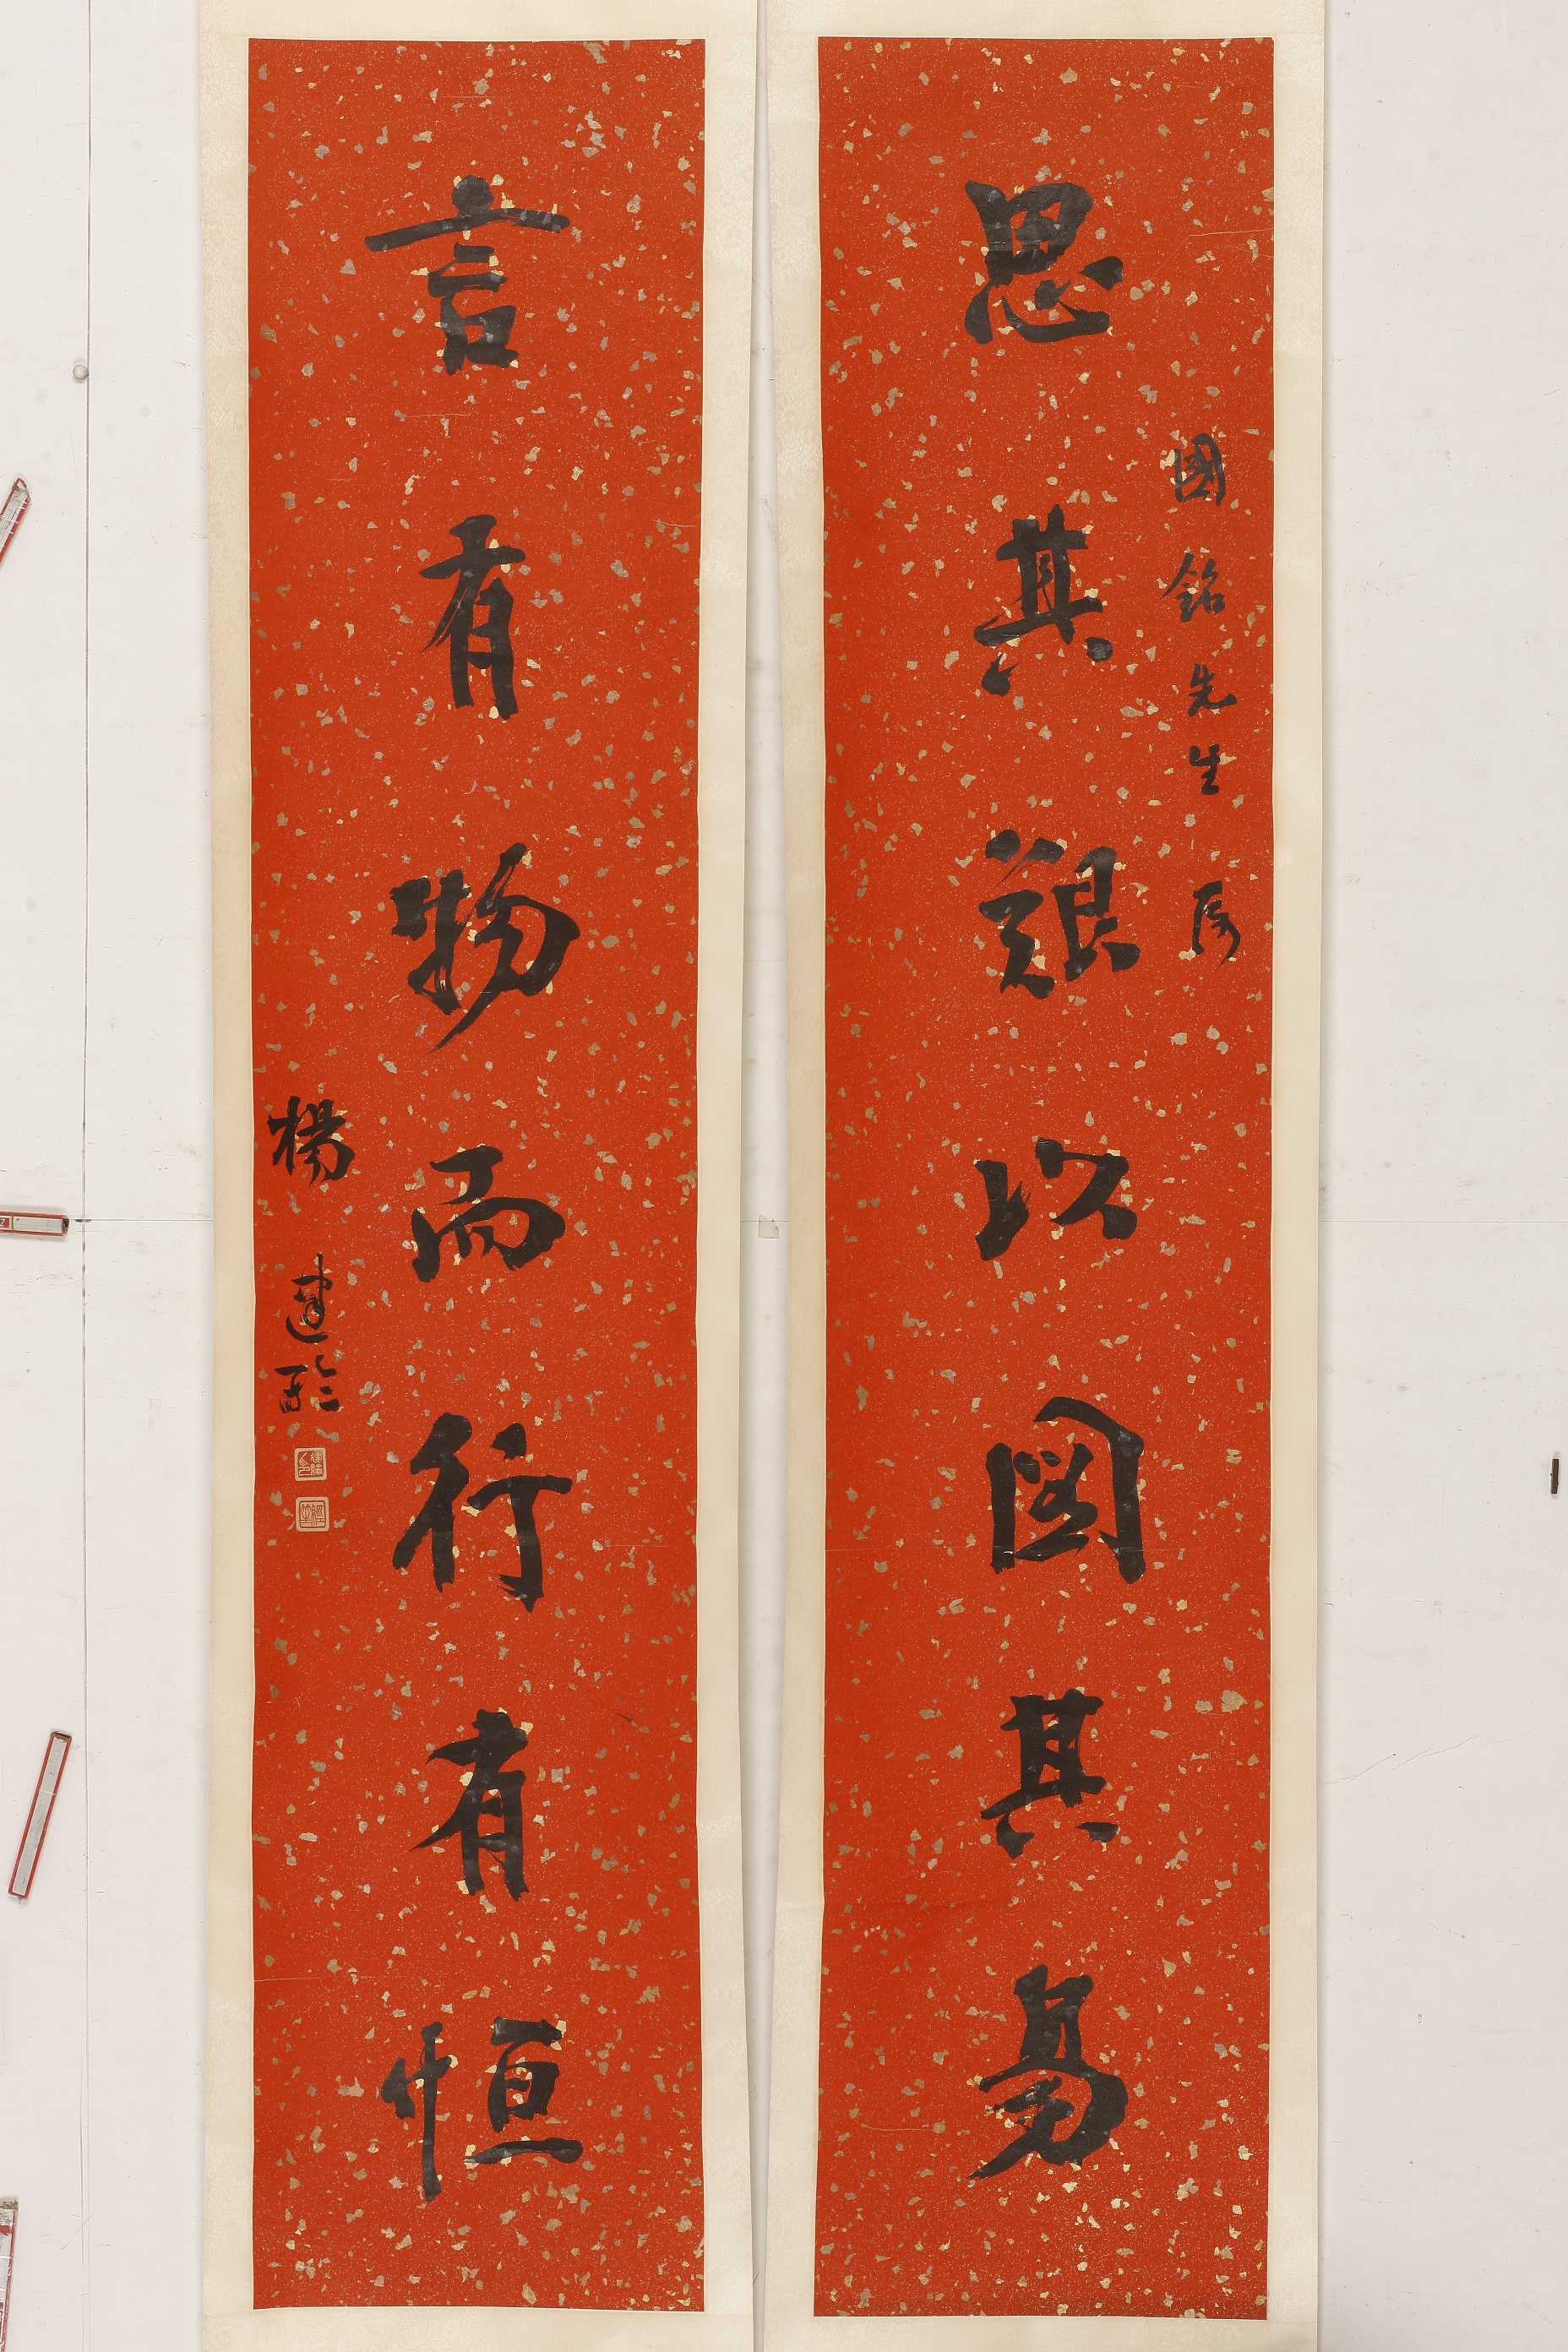 國銘先生屬
思其艱以圖其易
言有物而行有恒
楊建